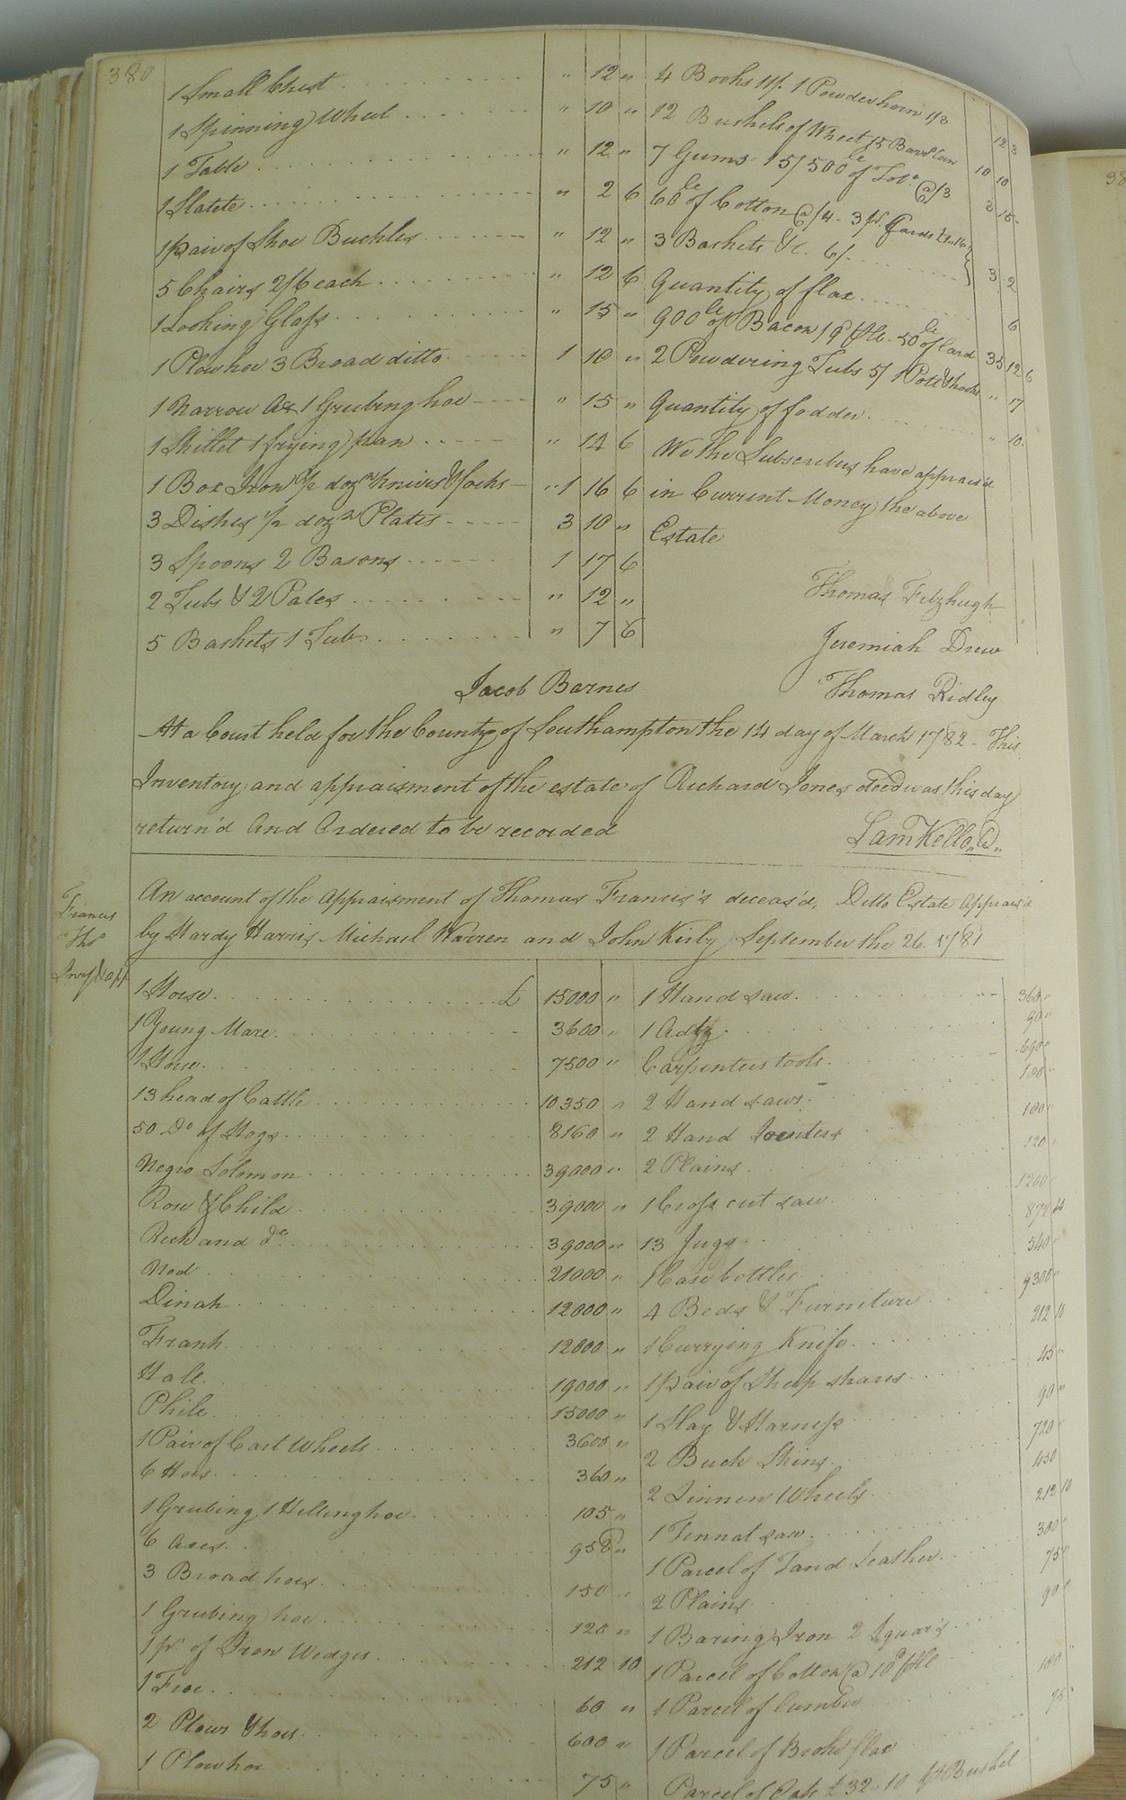 380
1 Small Chest " 12 "
1 Spinning Wheel " 10 "
1 Table " 12 "
1 Slate " 2 6
1 pair of Shoe Buckles " 12 "
5 Chairs 2/6 each " 12 6
1 Looking Glass " 15 "
1 Plow hoe 3 Broad ditto 1 10 "
1 Narrow Ax 1 Grubing hoe " 15 "
1 Skillet 1 frying pan " 14 6
1 Box Iron 1/2 dozn knives & forks " 1 16 6
3 Dishes 1/2 dozn Plates 3 10 "
3 Spoons 2 Basons 1 17 6
2 Tubs & 2 Pales " 12 "
5 Baskets 1 Tub " 7 6
4 Books 11/. 1 Powder horn 1/3 12 3
12 Bushels of Wheat 15 10 10
7 Gums 15/ 500 le of Tobo @ /3 15
60 le of Cotton @ /4 - 3 pr Cards
3 Baskets &c. 6/. 3 2
Quantity of flax 6
900 le of Bacon /9d 50 le of Lard 35 12 6
2 Powdering Tubs 5/ 1 Pott & hooks " 17
Quantity of fodder " 10
We the Subscribers have apprais'd
in Current Money the above
Estate
Thomas Fitzhugh
Jeremiah Drew
Jacob Barnes Thomas Ridley
At a Court held for the County of Southampton the 14 day of March 1782 - This
Inventory and appraisment of the estate of Richard Jones decd was this day
return'd And Ordered to be recorded
Sam Kello
Francis
Thos
An account of the Appraisment of Thomas Francis's deceas'd, Ditto Estate Apprais'd
by Hardy Harris Michael Warren and John Kirby September the 26 1781
1 Horse £ 15000 "
1 Young Mare 3600 "
1 Horse 7500 "
13 head of Cattle 10350 "
50 Do of Hogs 8160 "
Negro Solomon 39000 "
Rose & Child 39000 "
and Do 39000 "
Ned 21000 "
Dinah 12000 "
Frank 12000 "
19000 "
Phile 15000 "
1 Pair of Cart Wheels 3600 "
6 Hoes 360 "
1 Grubing 1 Hilling hoe 105 "
6 Axes
3 Broad hoes 150 "
1 Grubing hoe 120 "
1 pr of Iron Wedges 212 10
1 Froe 60 "
2 Plows & hoes 600 "
1 Plow hoe 75 "
1 Hand saw 360 "
1 Adz 90 "
Carpenters tools
2 Hand saws
2 Hand Jointers 100
2 Plains 120
1 Cross cut saw 1200
13 Jugs
1 Case bottles 340
4 Beds & Furniture 9300
1 Currying Knife 212 10
1 pair of Sheep shares 45
1 Slay & Harness 90
2 Buck Skins 720
2 Linnen Wheels 450
1 Tennat saw 212 10
1 Parcel of Tand Leather 300
2 Plains 75
1 Baring Iron 2 Squar's 90
1 Parcel of Cotton @ 10d
1 Parcel of lumber
1 Parcel of Broke flax
Parcel of Oats £ 32 10 Bushel